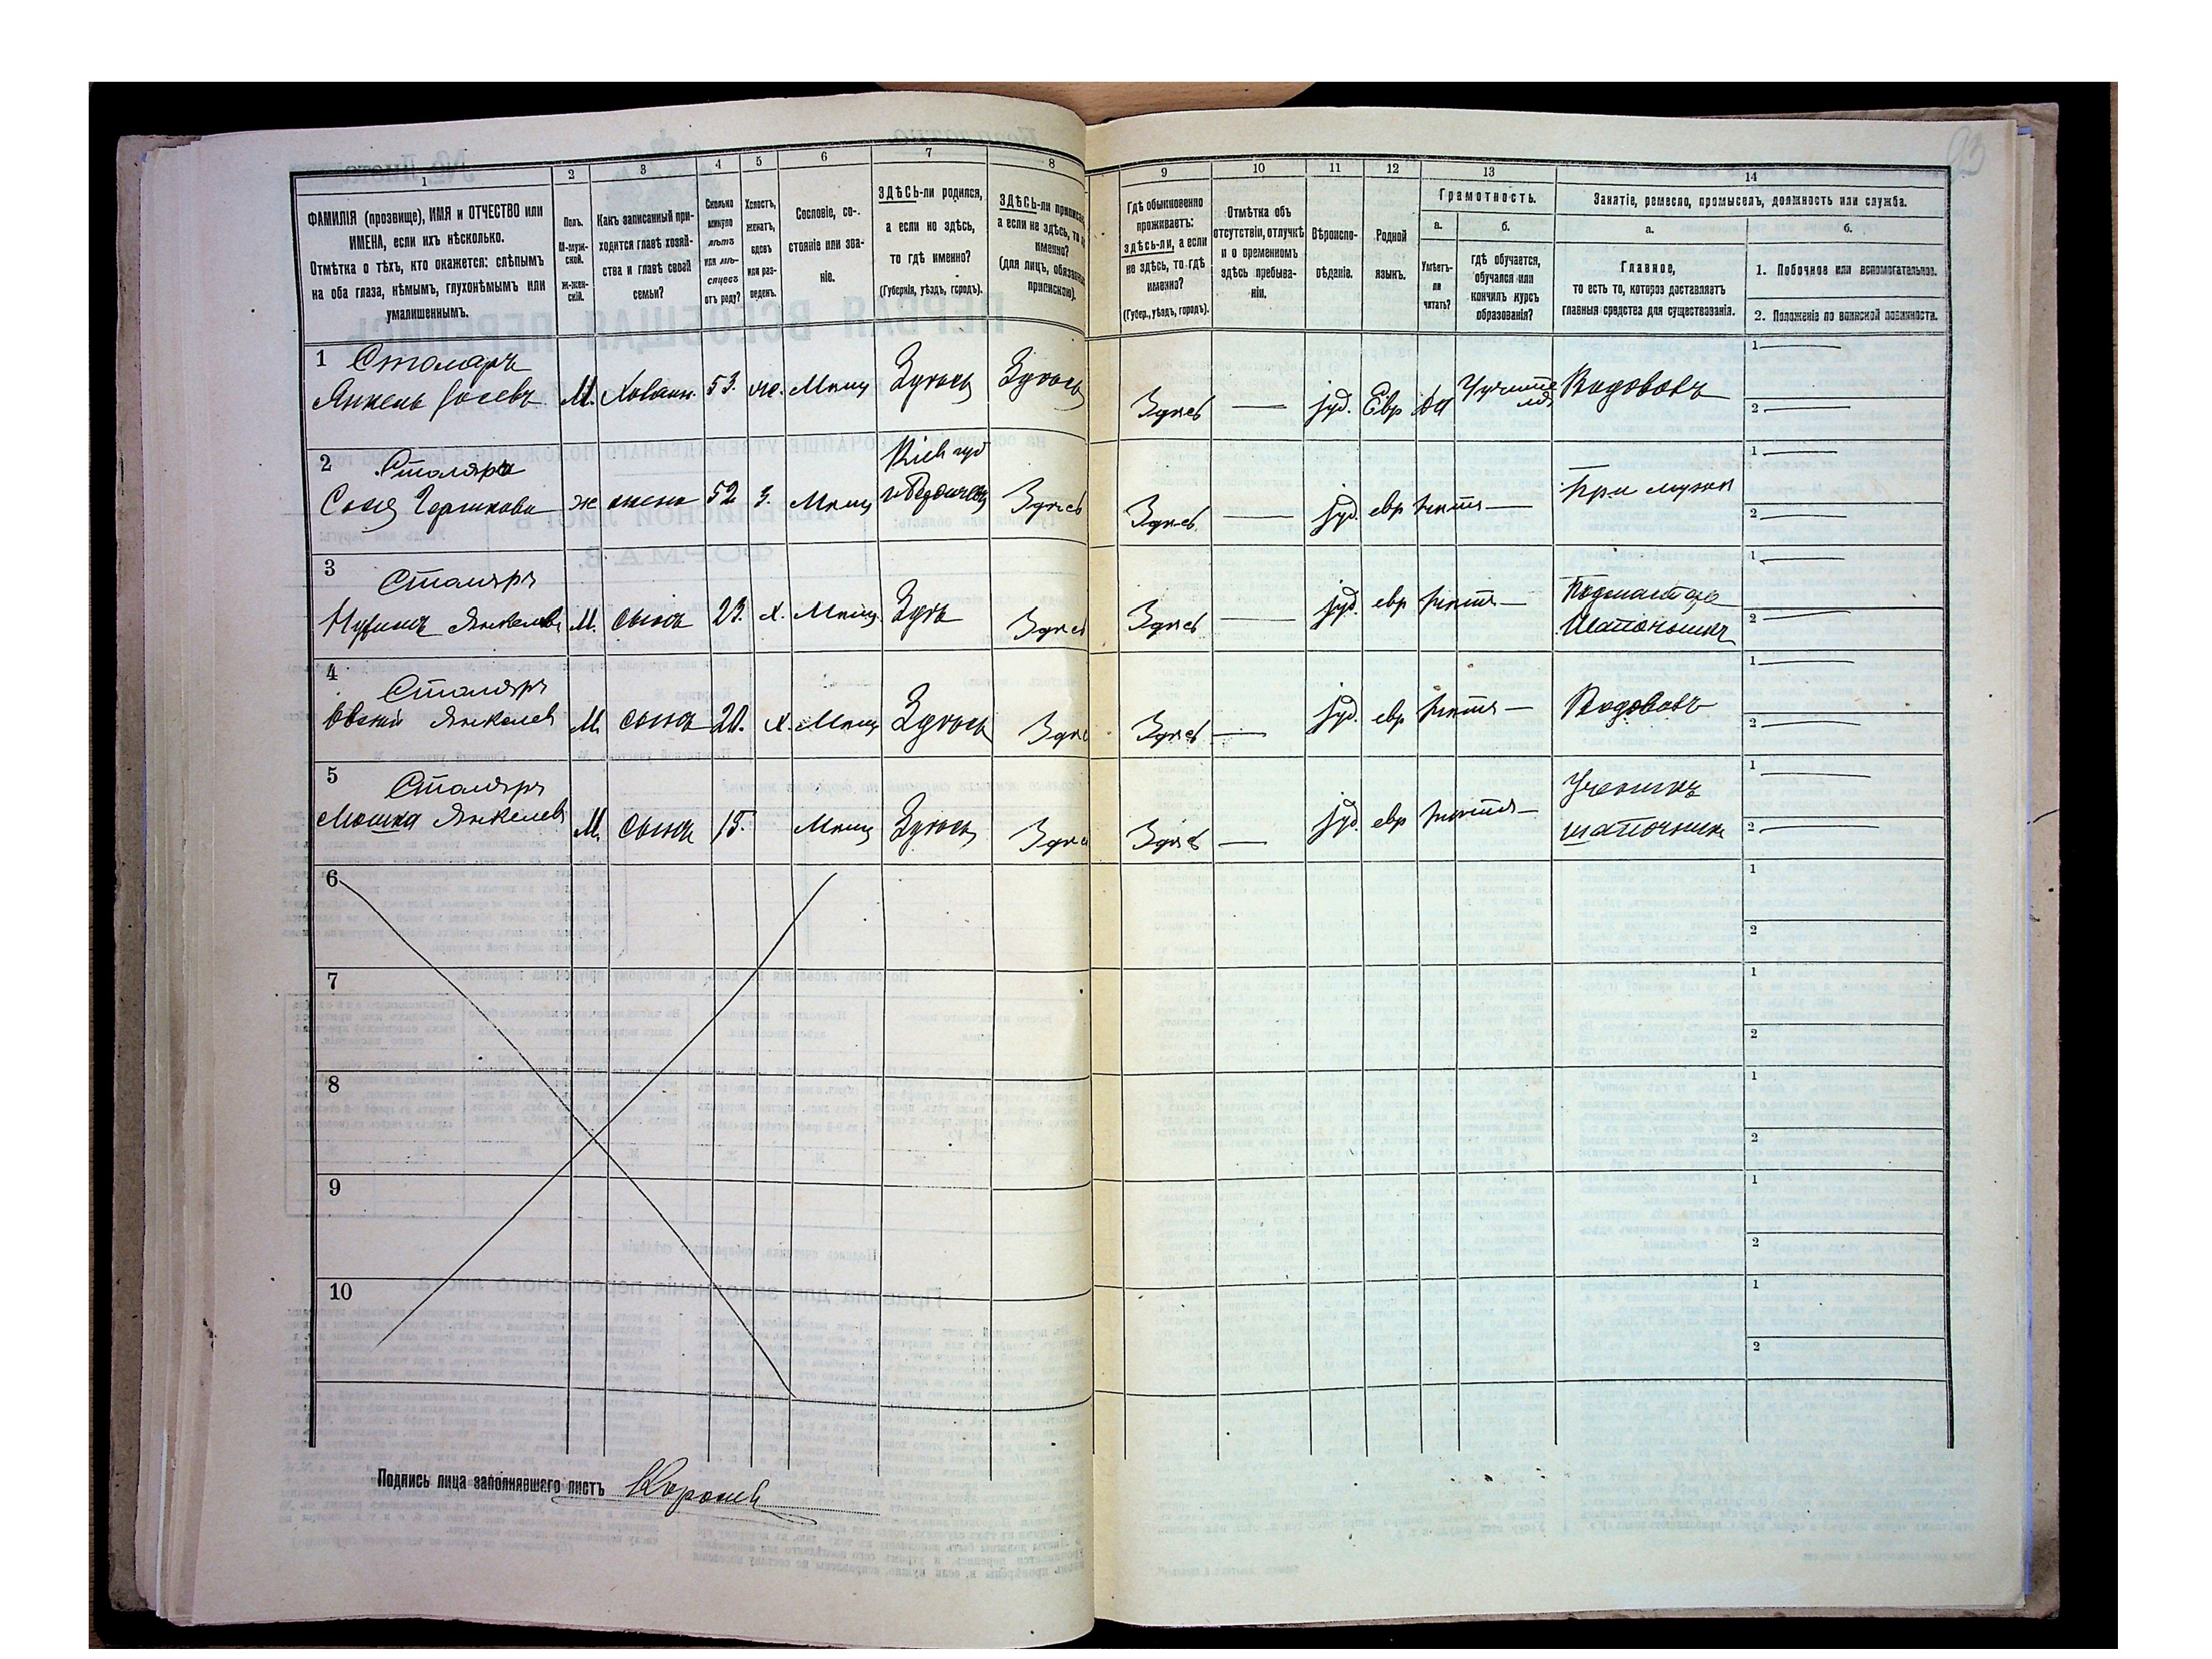 93
1 2 3 4 5 6 7 8 9 10 11 12 13 14
ФАМИЛІЯ (прозвище), ИМЯ и ОТЧЕСТВО или
ИМЕНА, если ихъ нѣсколько.
Отмѣтка о тѣхъ, кто окажется: слѣпымъ
на оба глаза, нѣмымъ, глухонѣмымъ или
умалишеннымъ.
Полъ.
М-муж-
ской.
Ж-жен-
скій.
Какъ записанный при-
ходится главѣ хозяй-
ства и главѣ своей
семьи?
Сколько
минуло
лѣтъ
или мѣ-
сяцевъ
отъ роду?
Холостъ,
женатъ,
вдовъ
или раз-
веденъ.
Сословіе, со-
стояніе или зва-
ніе.
ЗДѢСЬ-ли родился,
а если не здѣсь,
то гдѣ именно?
(Губернія, уѣздъ, городъ).
ЗДѢСЬ-ли приписанъ
а если не здѣсь, то
именно?
(для лицъ,
припискою).
Гдѣ обыкновенно
проживаетъ:
здѣсь-ли, а если
не здѣсь, то гдѣ
именно?
(Губер., уѣздъ, городъ).
Отмѣтка объ
отсутствіи, отлучкѣ
и о временномъ
здѣсь пребыва-
ніи.
Вѣроиспо-
вѣданіе.
Родной
языкъ.
Грамотность.
а. б.
Умѣетъ-
ли
читать?
гдѣ обучается,
обучался или
кончилъ курсъ
образованія?
Занятіе, ремесло, промыселъ, должность или служба.
а. б.
Главное,
то есть то, которое доставляетъ
главныя средства для существованія.
1. Побочное или вспомогательное.
2. Положеніе по воинской повинности.
1 Столяръ
Янкель Іосевъ М. Хозяин. 53. ж. Мѣщ Здѣсь Здѣсь Здѣсь — іуд. Евр да Учителя Водовозъ
1 —
2 —
2 Столяръ Кіев губ
Соня Гершкова ж жена 52 з. Мѣщ г Бердичев Здѣсь Здѣсь — іуд. евр нѣтъ — При мужѣ
1 —
2 —
3 Столяръ
Янкелевъ М. сынъ 23. х. Мѣщ. Здѣсь Здѣсь — іуд. евр нѣтъ — Подмастер
Шапочникъ
1 —
2 —
4 Столяръ
Овсей Янкелев М. сынъ 20. х. Мѣщ Здѣсь Здѣсь — іуд. евр нѣтъ — Водовозъ
1 —
2 —
5 Столяръ
Мошка Янкелевъ М. сынъ 15. Мѣщ Здѣсь Здѣсь — іуд. евр нѣтъ — Ученикъ
шапочника
1 —
2 —
6
1
2
7
1
2
8
1
2
9
1
2
10
1
2
Подпись лица заполнявшаго листъ